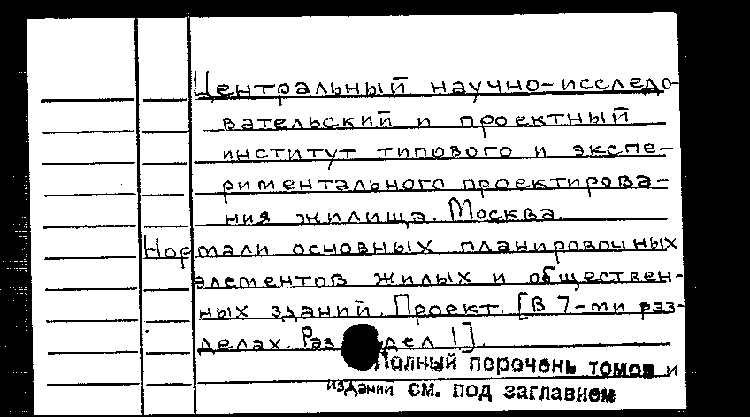 Центральный научно-исследо-
вательский и проектный
институт типового и экспе-
риментального проектирова-
ния жилища. Москва.
Нормали основных планировочных
элементов жилых и обществен-
ных зданий. Проект. [В 7-ми раз-
делах. Раздел 1].
Полный перечень томов и
изданий см. под заглавием